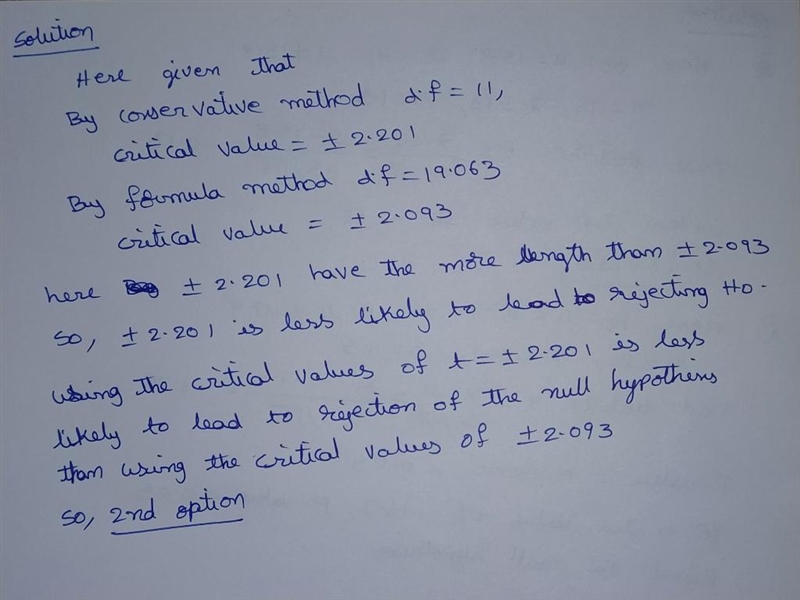 Solution
Here given that
By conservative method d.f = 11,
critical value = ± 2.201
By formula method d.f = 19.063
critical value = ± 2.093
here ± 2.201 have the more length than ± 2.093
So, ± 2.201 is less likely to lead to rejecting H0.
using the critical values of t = ± 2.201 is less
likely to lead to rejection of the null hypothesis
than using the critical values of ± 2.093
So, 2nd option